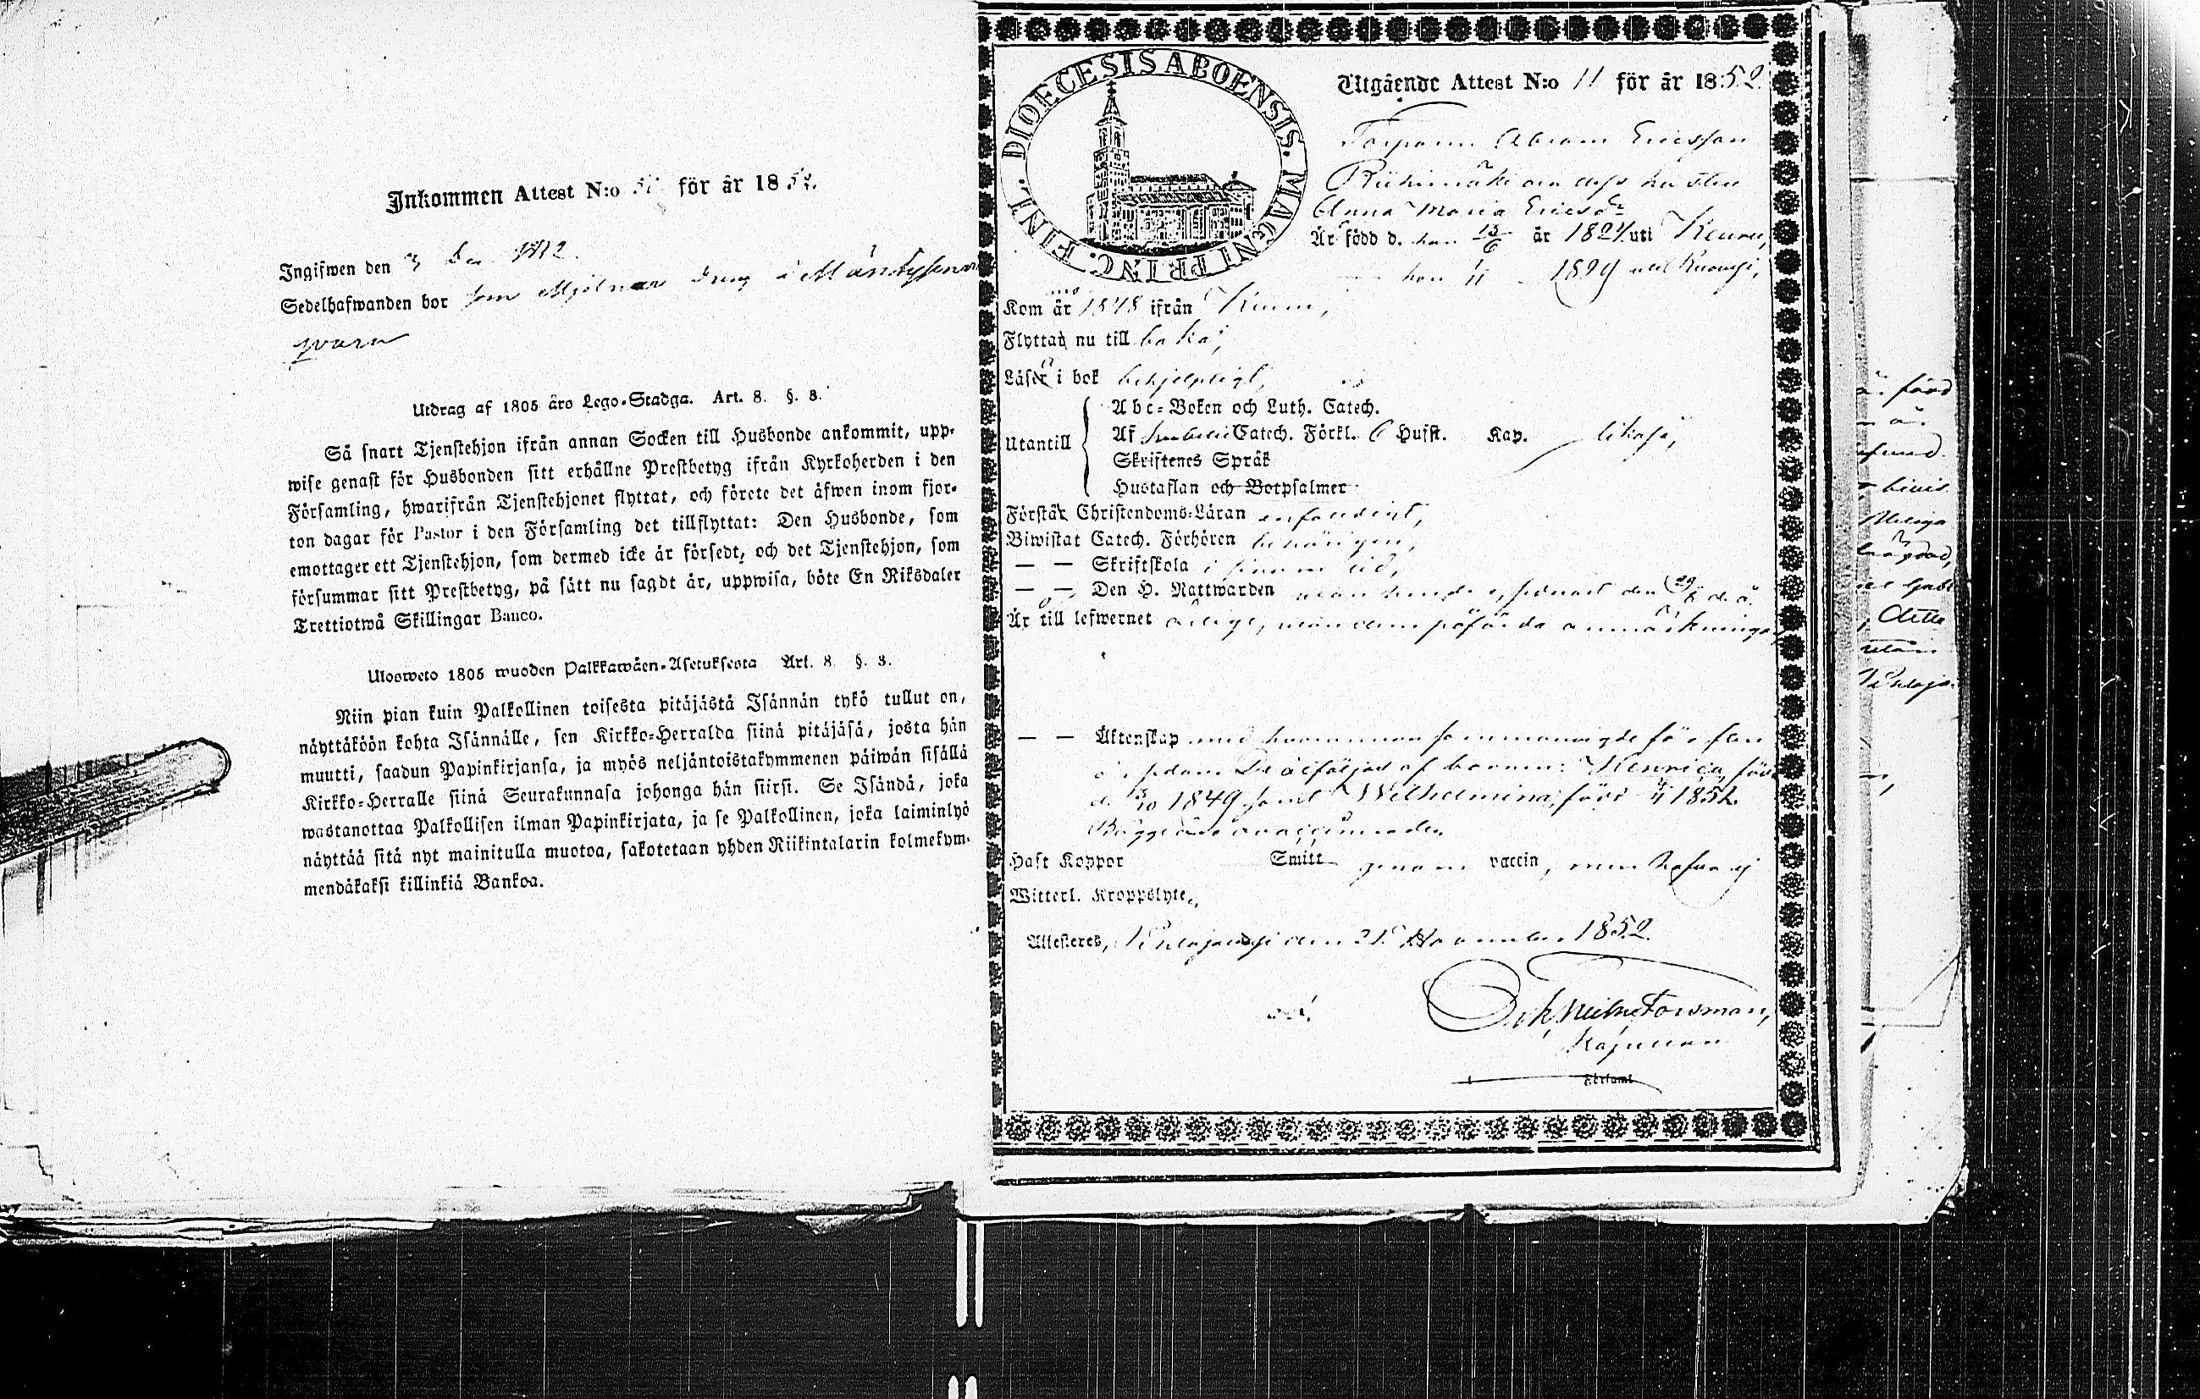 Inkommen Attest N:o för år 1852.
Ingifwen den 3 Dec 1852.
Sedelhafwanden bor som Mjölnare Dreng å Mäntyssaari
qvarn
Utdrag af 1805 års Lego-Stadga. Art. 8. §. 3.
Så snart Tjenstehjon ifrån annan Socken till Husbonde ankommit, upp-
wise genast för Husbonden sitt erhållne Prestbetyg ifrån Kyrkoherden i den
Församling, hwarifrån Tjenstehjonet flyttat, och förete det äfwen inom fjor-
ton dagar för Pastor i den Församling det tillflyttat: Den Husbonde, som
emottager ett Tjenstehjon, som dermed icke är försedt, och det Tjenstehjon, som
försummar sitt Prestbetyg, på sätt nu sagdt är, uppwisa, böte En Riksdaler
Trettiotwå Skillingar Banco.
Ulosweto 1805 wuoden Palkkawäen-Asetuksesta Art. 8. §. 3.
Niin pian kuin Palkollinen toisesta pitäjästä Isännän tykö tullut on,
näyttäköön kohta Isännälle, sen Kirkko-Herralda siinä pitäjäsä, josta hän
muutti, saadun Papinkirjansa, ja myös neljäntoistakymmenen päiwän sisällä
Kirkko-Herralle siinä Seurakunnasa johonga hän siirsi. Se Isändä, joka
wastanottaa Palkollisen ilman Papinkirjata, ja se Palkollinen, joka laiminlyö
näyttää sitä nyt mainitulla muotoa, sakotetaan yhden Riikintalarin kolmekym-
mendäkaksi killinkiä Bankoa.
DIOECESIS ABOENSIS. MAGNI PRINC. FINL.
Utgående Attest N:o 11 för år 1852.
Torparen Abram Ericsson
Riihimäki och dess hustru
Anna Maria Ericsdr
Är född d. han 13/6 år 1824 uti Keuru,
hon 1829 uti Ruovesi,
Kom år 1848 ifrån Keuru,
Flyttar nu till baka,
Läser i bok behjelpligt,
Utantill
Abc-Boken och Luth. Catech.
Af Catech. Förkl. 6 Hufst. Kap. likaså,
Skriftenes Språk
Hustaflan och Botpsalmer
Förstår Christendoms-Läran enfaldigt,
Biwistat Catech. Förhören behörigen,
— — Skriftskola i sinom tid,
— — Den H. Nattwarden senast den 29/8 d. å.
Är till lefwernet ärlige, utan dem påförde anmärkningar
— — Äktenskap med hwarannan sammanvigde för flere
år sedan De åtföljas af barnen: Henrica, född
d. 13/10 1849 samt Wilhelmina född 4/4 1852.
Bägge äro ovaccinerade.
Haft Koppor Smitt genom vaccin, men hafva ej
Witterl. Kroppslyte.
Attesteras, Pihlajavesi den 21 November 1852.
Forsman,
Kapellan
Församl.